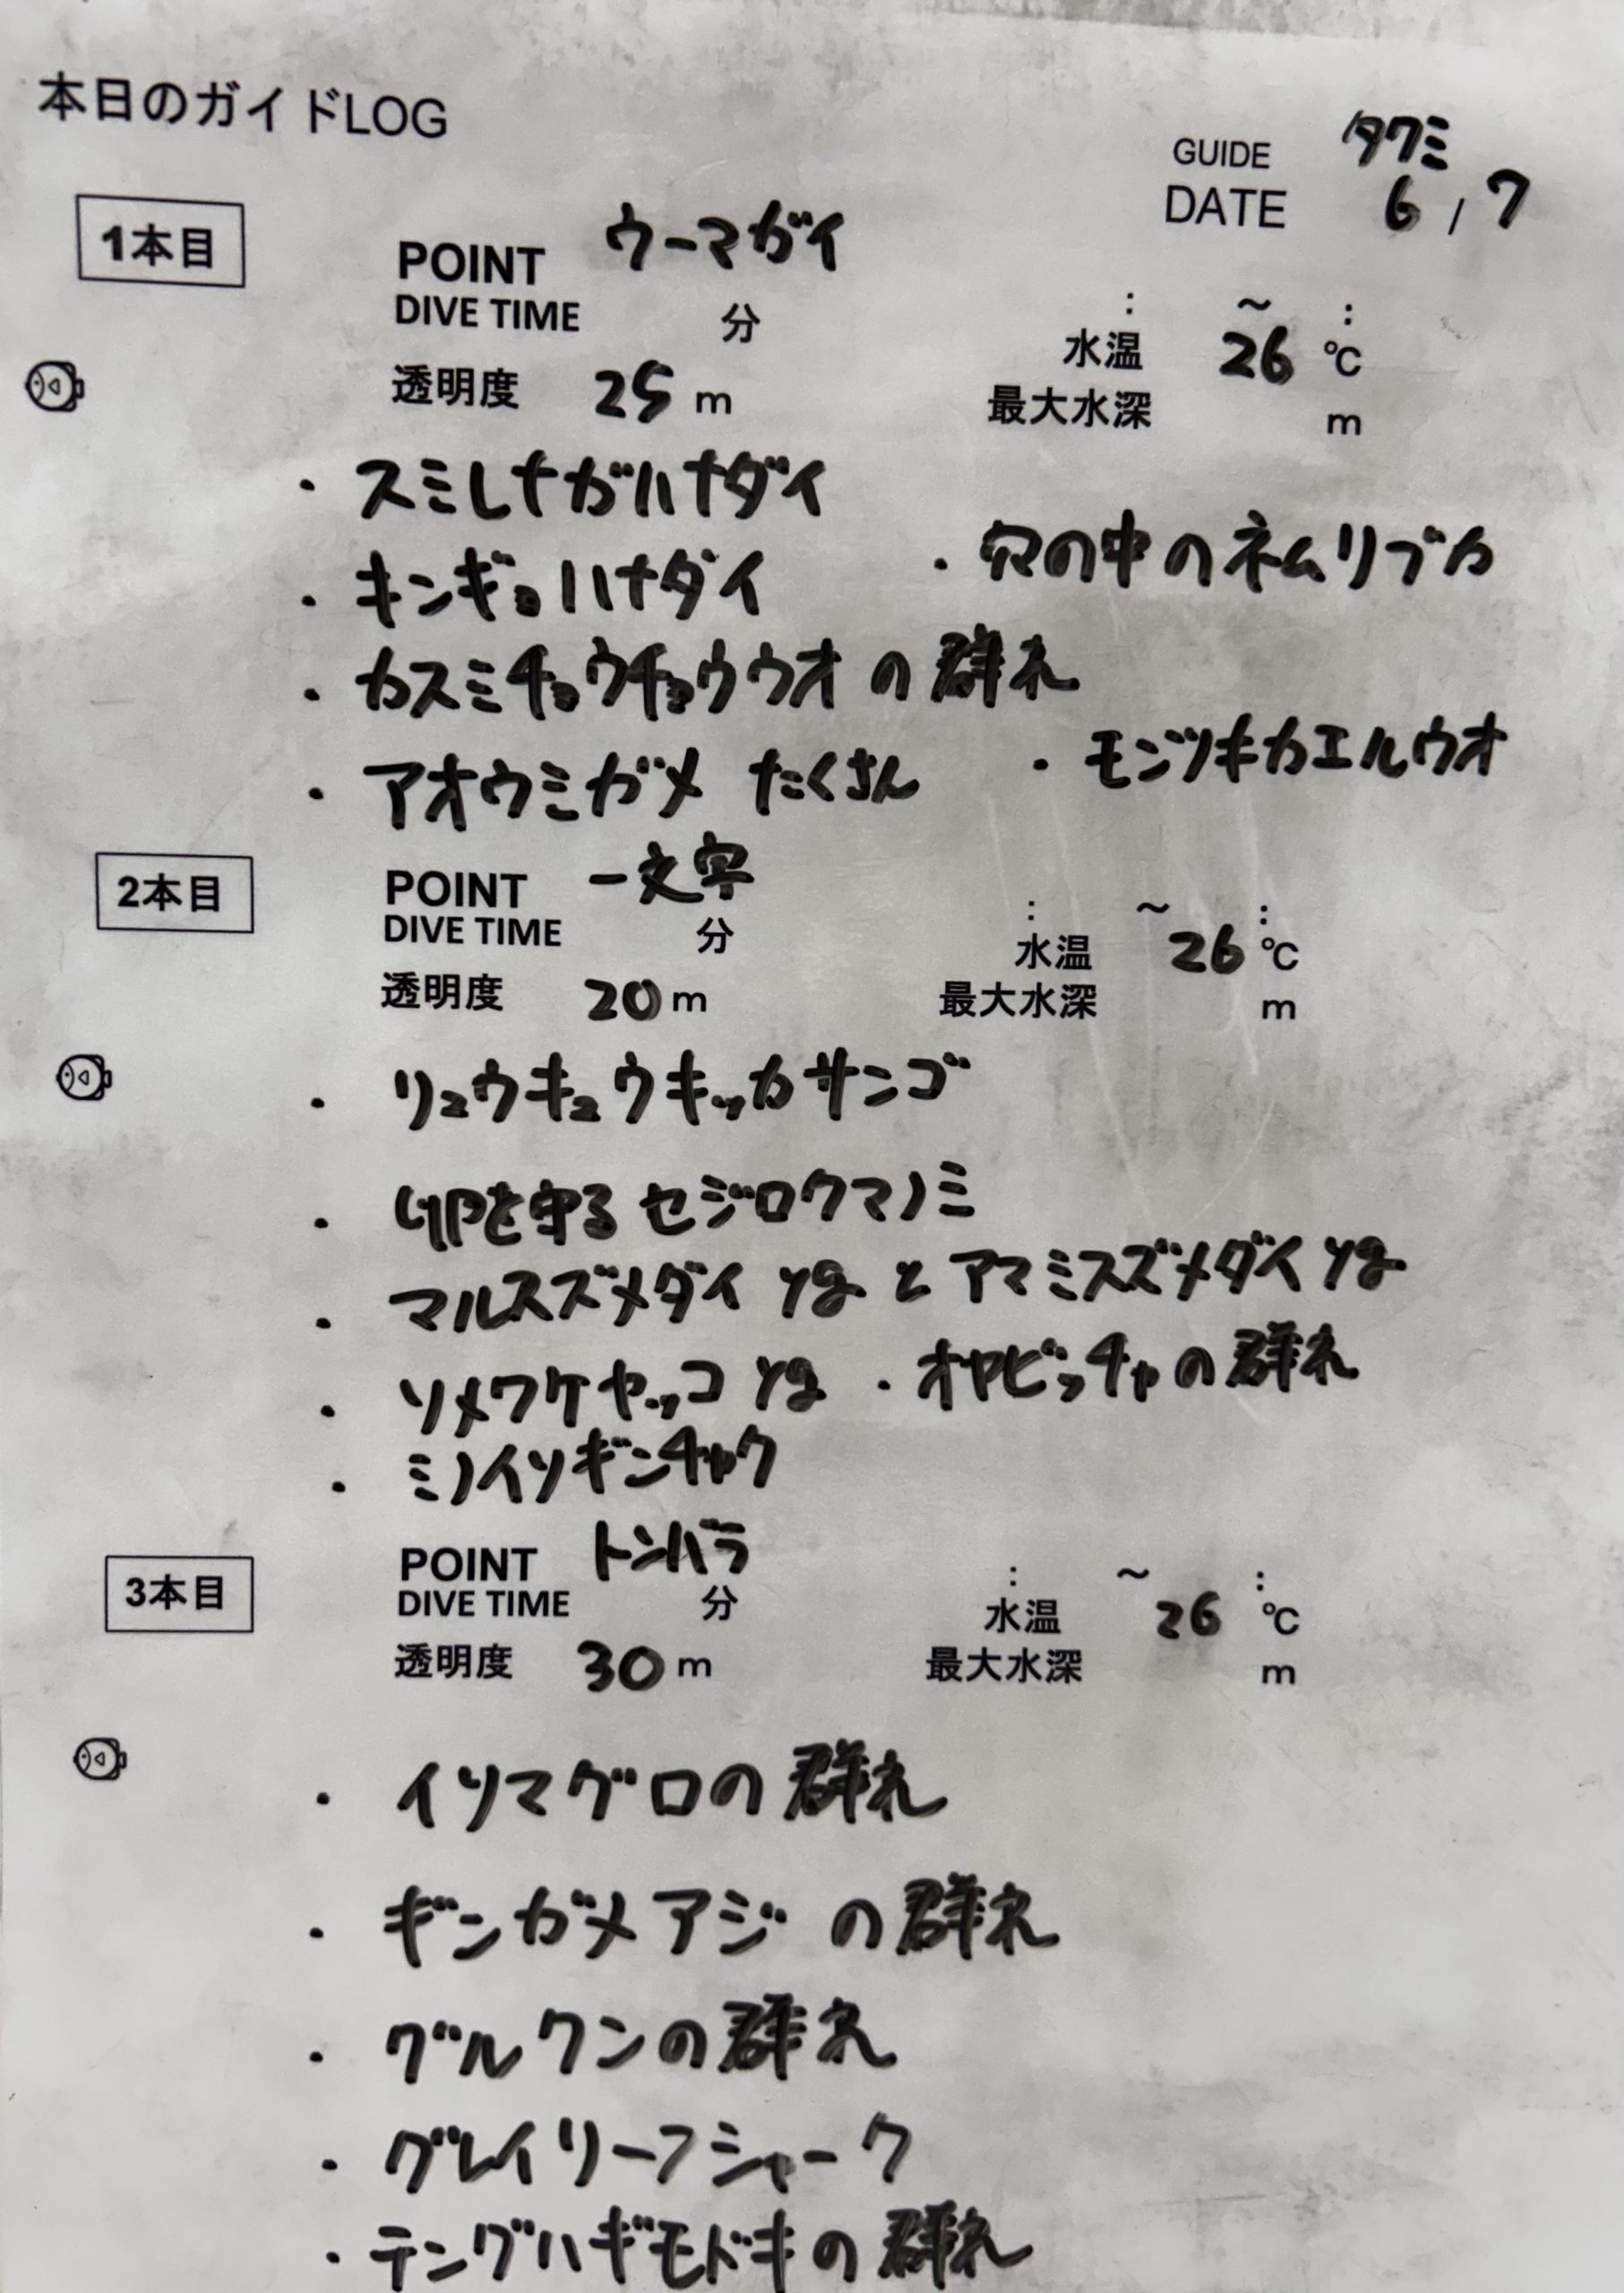 本日のガイドLOG
GUIDE タクミ
DATE 6 / 7
1本目
POINT ウーマガイ
DIVE TIME 分 : ~ :
透明度 25 m 水温 26 ℃
最大水深 m
・スミレナガハナダイ
・キンギョハナダイ ・穴の中のネムリブカ
・カスミチョウチョウウオの群れ
・アオウミガメ たくさん ・モンツキカエルウオ
2本目
POINT 一文字
DIVE TIME 分 : ~ :
透明度 20 m 水温 26 ℃
最大水深 m
・リュウキュウキッカサンゴ
・卵を守るセジロクマノミ
・マルスズメダイ yg と アマミスズメダイ yg
・ソメワケヤッコ yg ・オヤビッチャの群れ
・ミノイソギンチャク
3本目
POINT トンバラ
DIVE TIME 分 : ~ :
透明度 30 m 水温 26 ℃
最大水深 m
・イソマグロの群れ
・ギンガメアジの群れ
・グルクンの群れ
・グレイリーフシャーク
・テングハギモドキの群れ